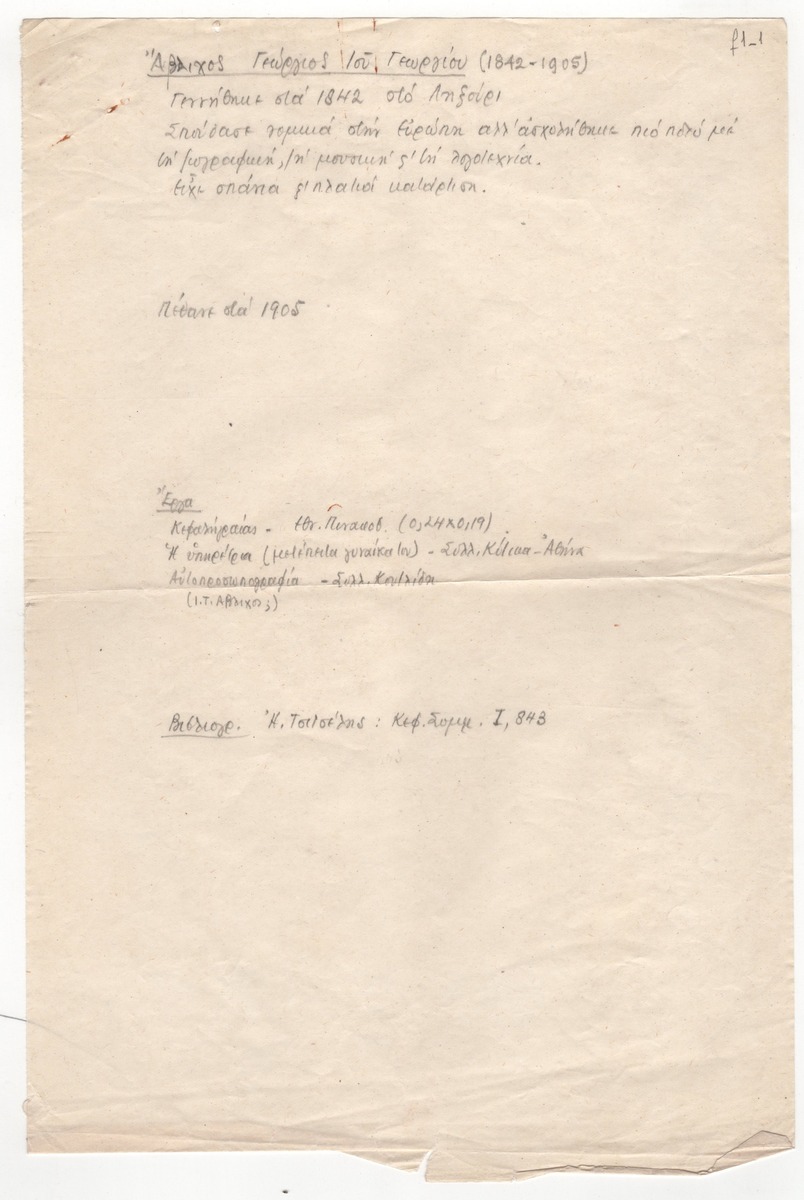 f1-1
Ἄβλιχος Γεώργιος τοῦ Γεωργίου (1842-1905)
Γεννήθηκε στά 1842 στό Ληξούρι
Σπούδασε νομικά στήν Εὐρώπη αλλ' ἀσχολήθηκε πιό πολύ μέ
τή ζωγραφική, τή μουσική κ' τή λογοτεχνία.
Εἶχε σπάνια κ' πλατιά κατάρτιση.
Πέθανε στά 1905
Ἔργα
Κεφαλή γραίας - Εθν. Πινακοθ. (0,24×0,19)
Ἡ ὑπηρέτρια (μετέπειτα γυναίκα του) - Συλλ. Κύτικα - Ἀθήνα
Αὐτοπροσωπογραφία - Συλλ.
(Ι.Τ. Άβλιχος;)
Βιβλιογρ. Ἠ. Τσιτσέλης : Κεφ. Συμμ. I, 843